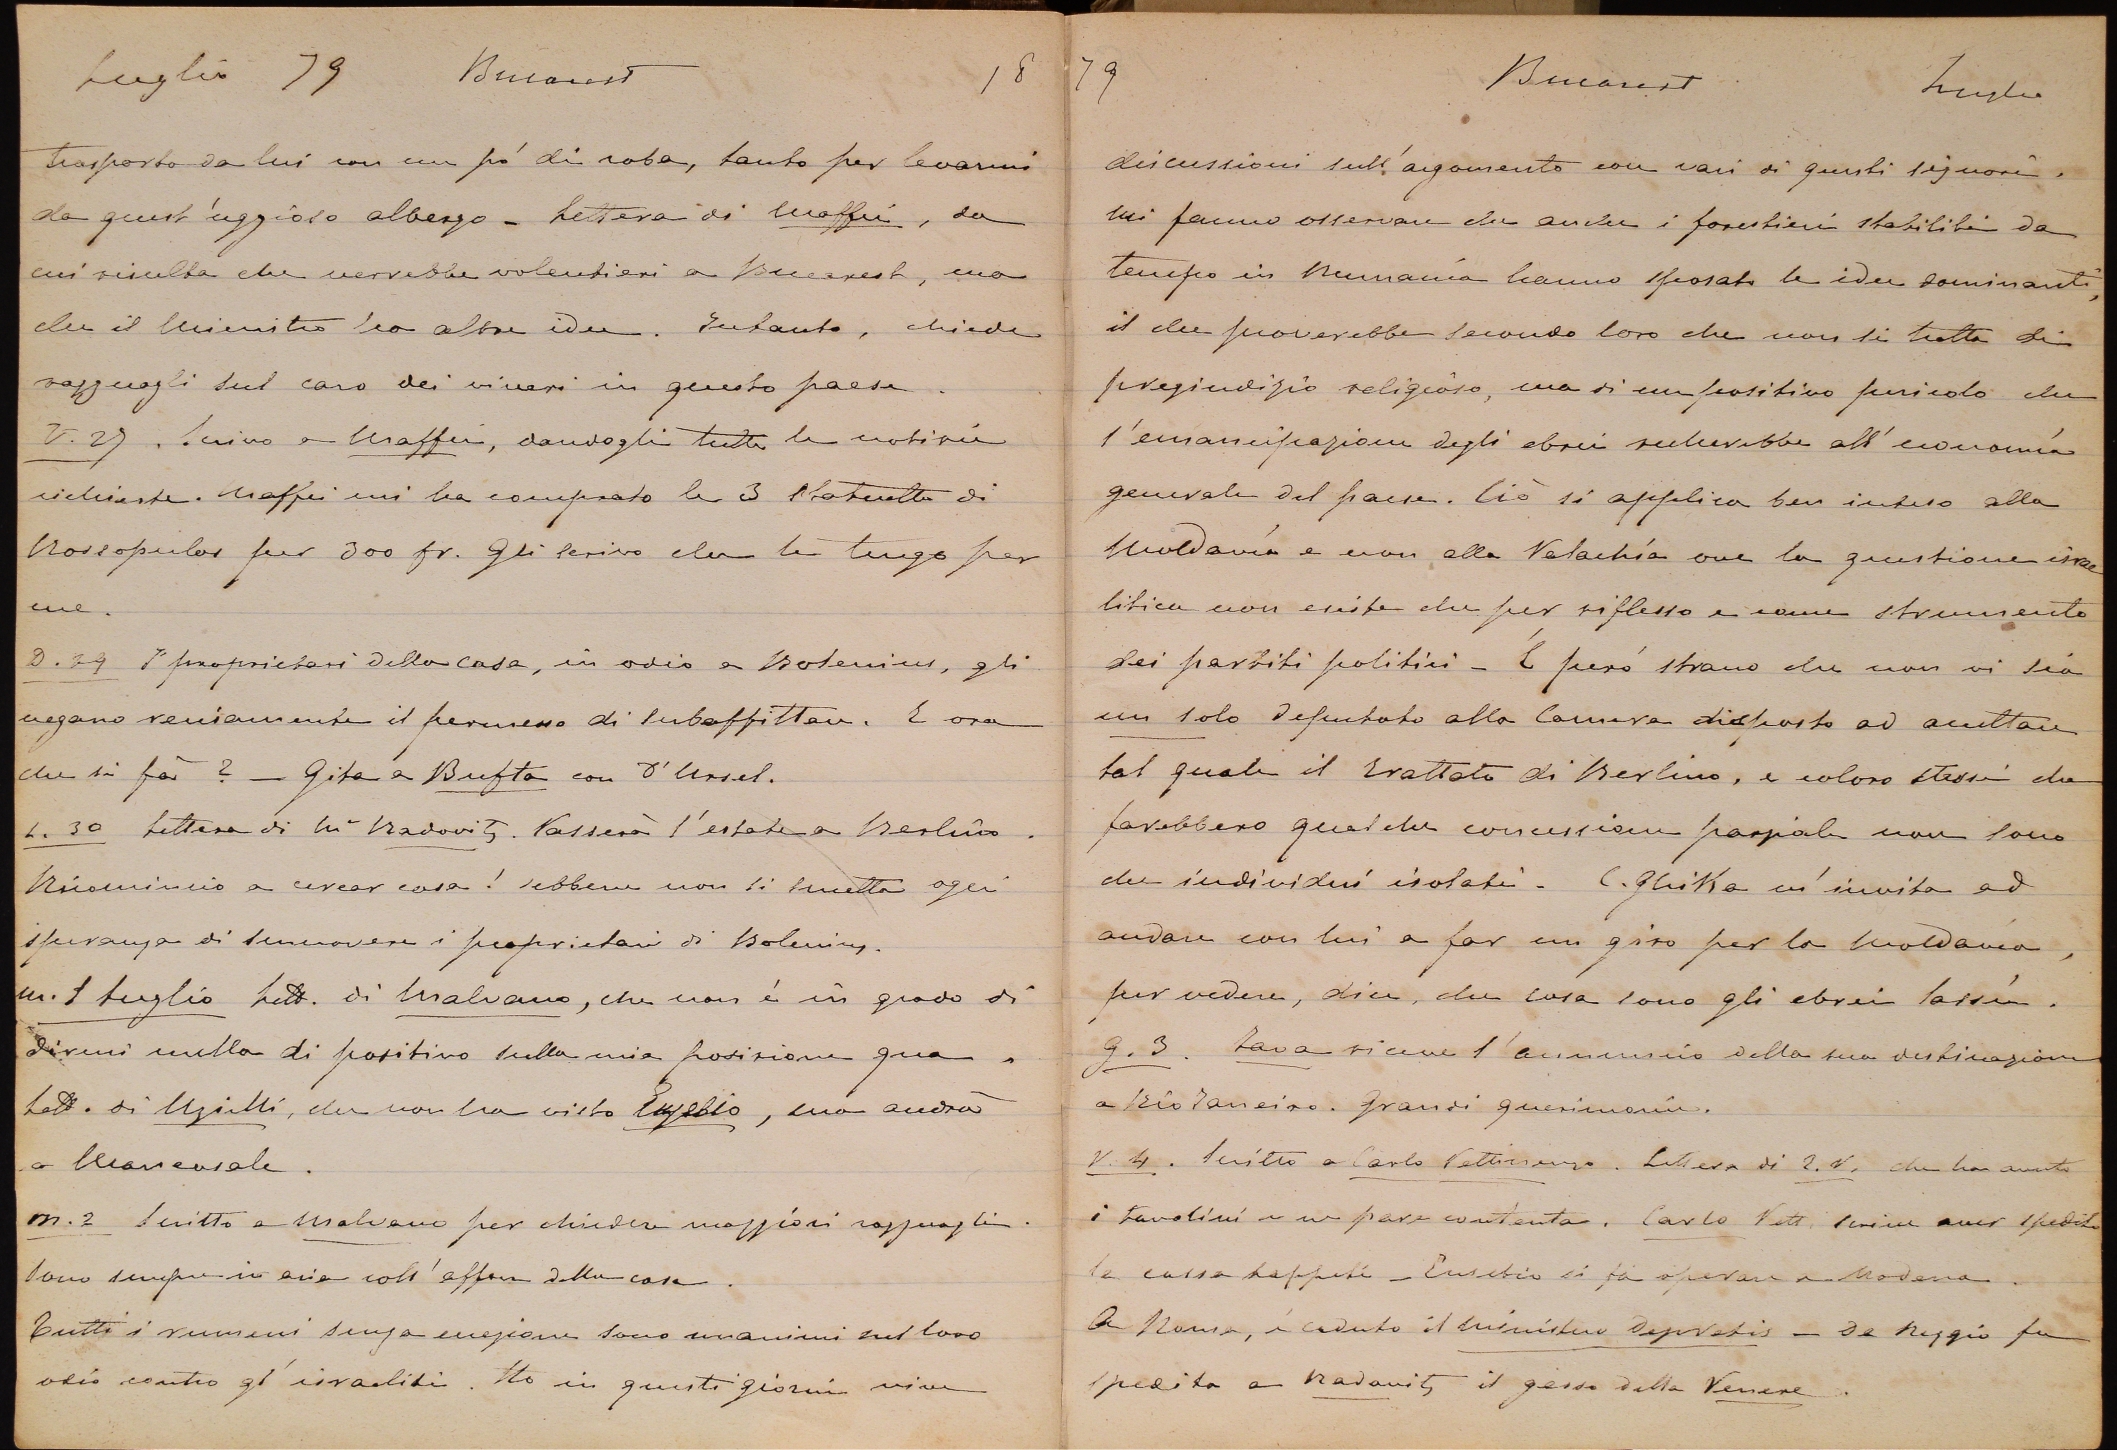 Luglio 79 Bucarest 18
trasporto da lui con un pó di roba, tanto per levarmi
da quest'uggioso albergo – Lettera di Maffei, da
cui risulta che verrebbe volentieri a Bucarest, ma
che il Ministro ha altre idee. Intanto, chiede
ragguagli sul caro dei viveri in questo paese.
V. 27. Scrivo a Maffei, dandogli tutte le notizie
richieste. Maffei mi ha comprato le 3 statuette di
Rossopulos per 300 fr. Gli scrivo che le tengo per
me.
D. 29 I proprietari della casa, in odio a Bolenius, gli
negano recisamente il permesso di subaffittare. E ora
che si fà? – Gita a Bufta con D'Ursel.
L. 30 Lettera di Mr Radovitz. Passerà l'estate a Berlino.
Ricomincio a cercar casa! sebbene non si smetta ogni
speranza di smuovere i proprietari di Bolenius.
M. 1 Luglio Lett. di Malvano, che non é in grado di
dirmi nulla di positivo sulla mia posizione qua.
Lett. di Uzielli, che non ha visto Eusebio, ma andrà
a Mancasale.
M. 2 Scritto a Malvano per chiedere maggiori ragguagli.
Sono sempre in aria coll'affare della casa.
Tutti i rumeni senza eccezione sono unanimi nel loro
odio contro gl'israeliti. Ho in questi giorni vive
79 Bucarest Luglio
discussioni sull'argomento con vari di questi signori.
Mi fanno osservare che anche i forestieri stabiliti da
tempo in Rumanía hanno sposato le idee dominanti,
il che proverebbe secondo loro che non si tratta di
pregiudizio religioso, ma di un positivo pericolo che
l'emancipazione degli ebrei recherebbe all'economía
generale del paese. Ció si applica ben inteso alla
Moldavía e non alla Valachía ove la questione israe
litica non esiste che per riflesso e come strumento
dei partiti politici – É peró strano che non vi sia
un solo deputato alla Camera disposto ad accettare
tal quale il Trattato di Berlino, e coloro stessi che
farebbero qualche concessione parziale non sono
che individui isolati – C. Ghika m'invita ad
andare con lui a far un giro per la Moldavía,
per vedere, dice, che cosa sono gli ebrei lassú.
G. 3. Tava riceve l'annuncio della sua destinazione
a Rio Janeiro. Grandi querimonie.
V. 4. Scritto a Carlo Pettinengo. Lettera di che ha avuto
i tavolini e ne pare contenta. Carlo Pett. scrive aver spedito
la cassa tappeti – Eusebio si fa operare a Modena.
A Roma, é caduto il Ministero Depretis – Da Reggio fu
spedita a Radovitz il gesso della Venere.